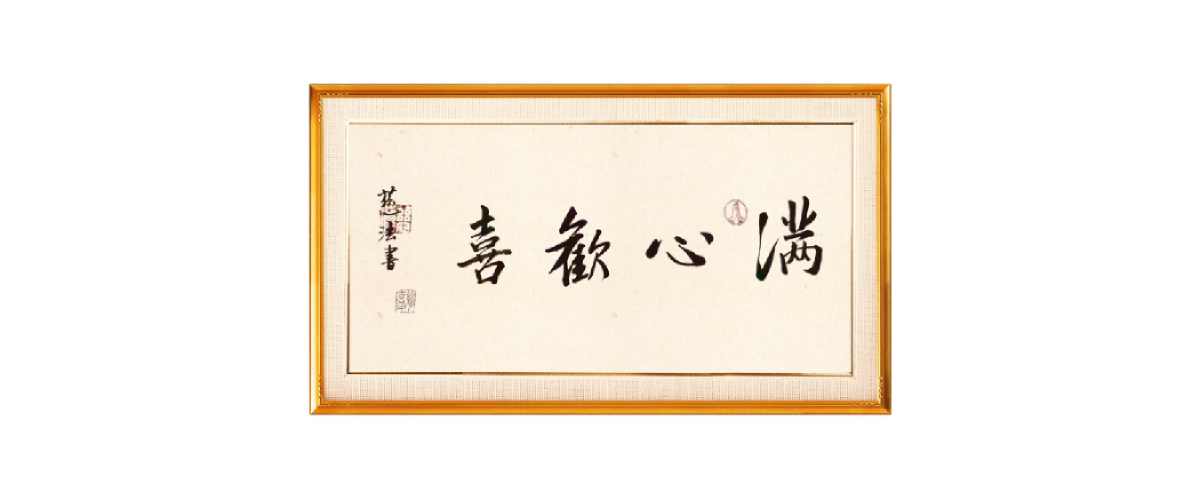 满心歡喜
慈法書